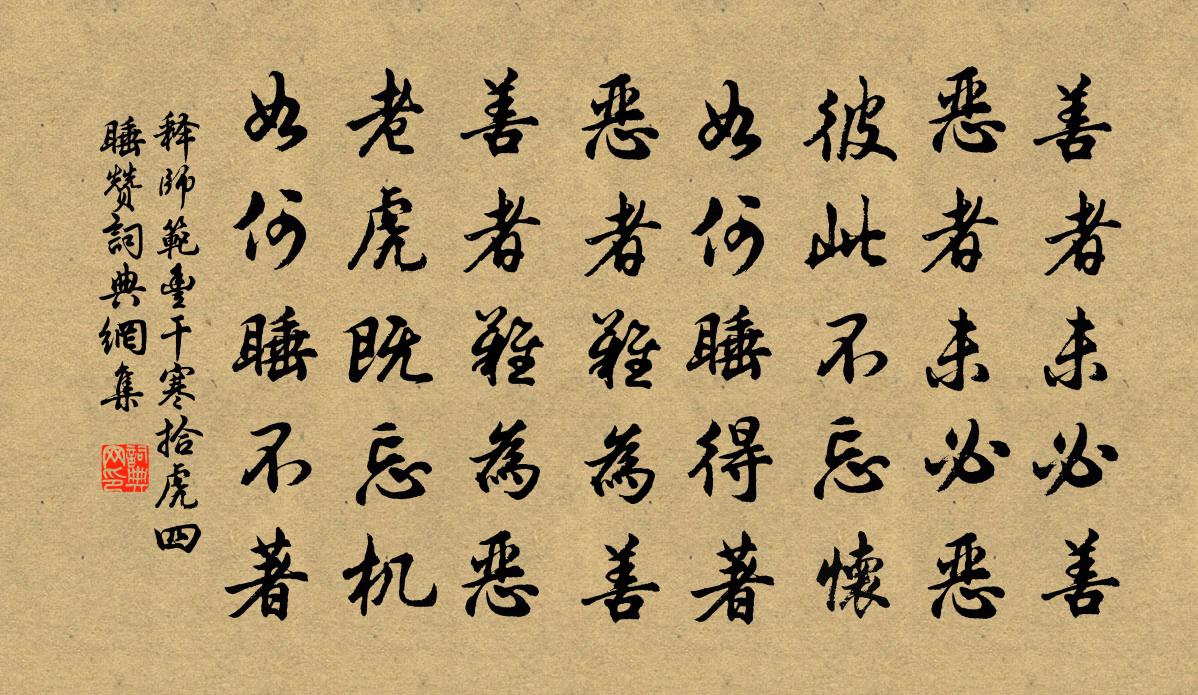 善者未必善
惡者未必惡
彼此不忘懷
如何睡得著
惡者難為善
善者難為惡
老虎既忘机
如何睡不著
释師範豊干寒拾虎四
睡赞詞典網集
詞典网印